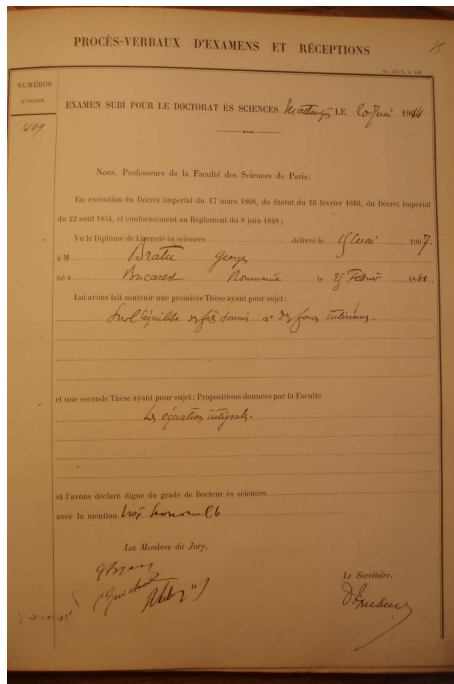 15
PROCÈS-VERBAUX D'EXAMENS ET RÉCEPTIONS
NUMÉROS
D'ORDRE
EXAMEN SUBI POUR LE DOCTORAT ÈS SCIENCES LE 20 Juin 1914
Nous, Professeurs de la Faculté des Sciences de Paris:
En exécution du Décret impérial du 17 mars 1808, du Statut du 16 février 1810, du Décret impérial
du 22 août 1854, et conformément au Règlement du 8 juin 1848;
Vu le Diplôme de Licencié ès sciences délivré le 15 Mai 1907.
à M Bratu George
né à Bucarest Roumanie le 25 Février 1881.
Lui avons fait soutenir une première Thèse ayant pour sujet:
Sur l'équilibre des fils soumis à des forces intérieures.
et une seconde Thèse ayant pour sujet: Propositions données par la Faculté
Les équations intégrales.
et l'avons déclaré digne du grade de Docteur ès sciences
avec la mention très honorable
Les Membres du Jury,
Le Secrétaire,